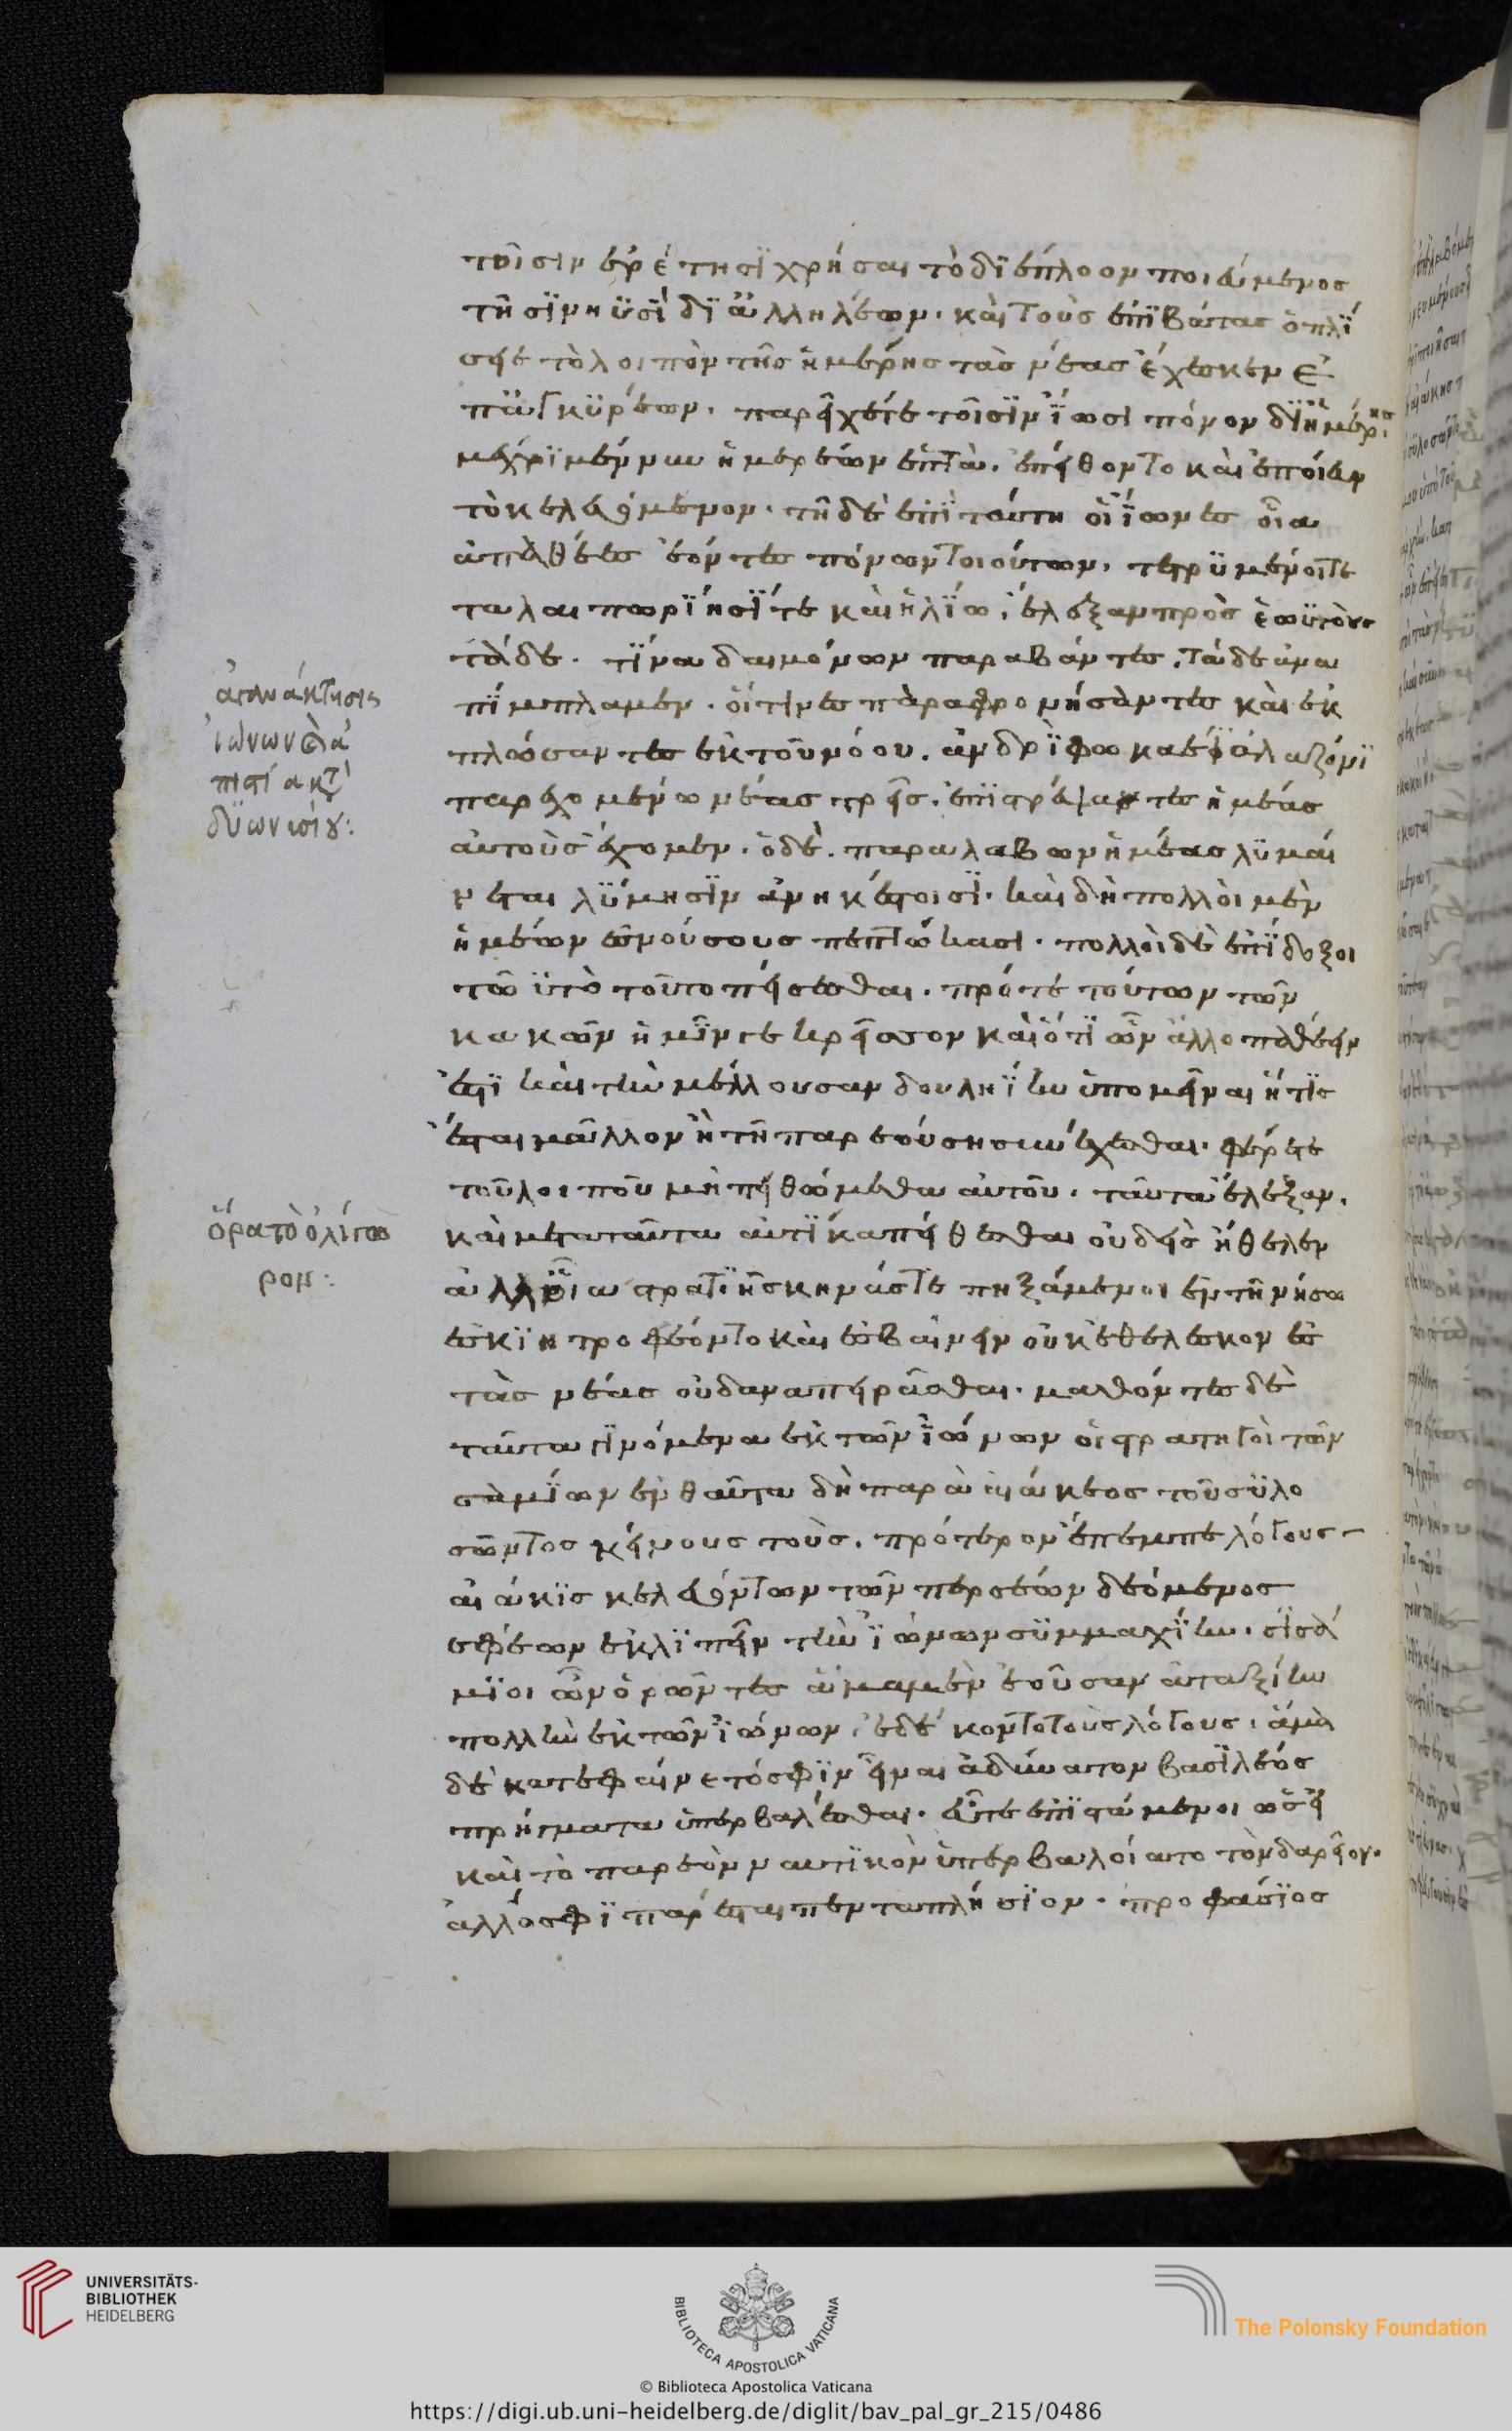 ἀγανάκτησις
ἰώνων
δϋωνισίου:
ὅρα τὸ ὀλίγω
ρον:
τοῖσιν ἐρέτησϊ χρήσαι τὸ δϊέκπλοον ποιεύμενος
τῆσϊ νηϋσὶ δϊ ἀλληλέων. καὶ τοὺς ἐπϊβάτας ὁπλί
σειε τὸ λοιπὸν τῆς ἡμέρης τὰς νέας ἔχεσκεν ἐ
π' ἀγκϋρέων. παρεῖχέ τε τοῖσϊν ἴωσι πόνον δϊ ἡμέρης
μέχρϊ μέν νυν ἡμερέων ἑπτὰ. ἐπείθοντο καὶ ἐποίευν
τὸ κελευόμενον. τῆ δὲ ἐπὶ ταύτη οἱ ἴωνες οἷα
ἀπαθέες ἐόντες πόνων τοιούτων. τετρϋμένοι τε
ταλαιπωρΐησΐ τε καὶ ἡλΐω. ἔλεξαν πρὸς ἑωϋτοὺς
τάδε. τΐνα δαιμόνων παραβάντες. τάδε ἀνα
πΐμπλαμεν. οἵτινες παραφρονήσαντες καὶ ἐκ
πλώσαντες ἐκ τοῦ νόου. ἀνδρϊ φωκαέϊ ἀλαζόνϊ
παρεχομένω νέας τρεῖς. ἐπϊτρέψαντες ἡμέας
αὐτοὺς ἔχομεν. ὁ δὲ. παραλαβων ἡμέας λϋμαί
νεται λΰμησϊν ἀνηκέστοισϊ. καὶ δὴ πολλοὶ μὲν
ἡμέων ἐς νούσους πεπτώκασι. πολλοὶ δὲ ἐπΐδοξοι
τωὐτὸ τοῦτο πείσεσθαι. πρό τε τούτων τῶν
κακῶν ἡμῖν γε κρεῖσσον καὶ ὅτϊ ὦν ἄλλο παθέειν
ἐστϊ καὶ τὴν μέλλουσαν δουληΐην ὑπομεῖναι ἥτϊς
ἔσται μᾶλλον ἢ τῆ παρεούση συνέχεσθαι. φέρετε
τοῦ λοιποῦ μὴ πειθώμεθα αὐτοῦ. ταῦτα ἔλεξαν.
καὶ μετὰ ταῦτα αὐτΐκα πείθεσθαι οὐδεὶς ἤθελεν
ἀλλ' οἷα στρατϊῆ σκηνάς τε πηξάμενοι ἐν τῆ νήσω
ἐσκϊητροφέοντο καὶ ἐσβαίνειν οὐκ ἐθέλεσκον ἐς
τὰς νέας οὐδ' ἀναπειρᾶσθαι. μαθόντες δὲ
ταῦτα γϊνόμενα ἐκ τῶν ϊώνων οἱ στρατηγοὶ τῶν
σαμΐων ἐνθαῦτα δὴ παρὰ αἰάκεος τοῦ σϋλο
σῶντος κείνους τοὺς. πρότερον ἔπεμπε λόγους
αἰάκϊς κελευόντων τῶν περσέων δεόμενος
σφέων ἐκλϊπεῖν τὴν ϊώνων σϋμμαχΐην. οἱ σά
μϊοι ὦν ὁρῶντες ἅμα μὲν ἐοῦσαν ἀταξΐην
πολλὴν ἐκ τῶν ϊώνων ἐδέκοντο τοὺς λόγους. ἅμα
δὲ κατεφαίνετό σφϊν εἶναι ἀδύνατον βασϊλέος
πρήγματα ὑπερβαλέσθαι. εὖτε ἐπϊστάμενοι ὡς εἰ
καὶ τὸ παρεὸν ναυτϊκὸν ὑπερβαλοίατο τὸν δαρεῖον.
ἄλλό σφϊ παρέσται πενταπλήσϊον. προφάσϊος
UNIVERSITÄTS-
BIBLIOTHEK
HEIDELBERG
BIBLIOTECA APOSTOLICA VATICANA
© Biblioteca Apostolica Vaticana
The Polonsky Foundation
https://digi.ub.uni-heidelberg.de/diglit/bav_pal_gr_215/0486